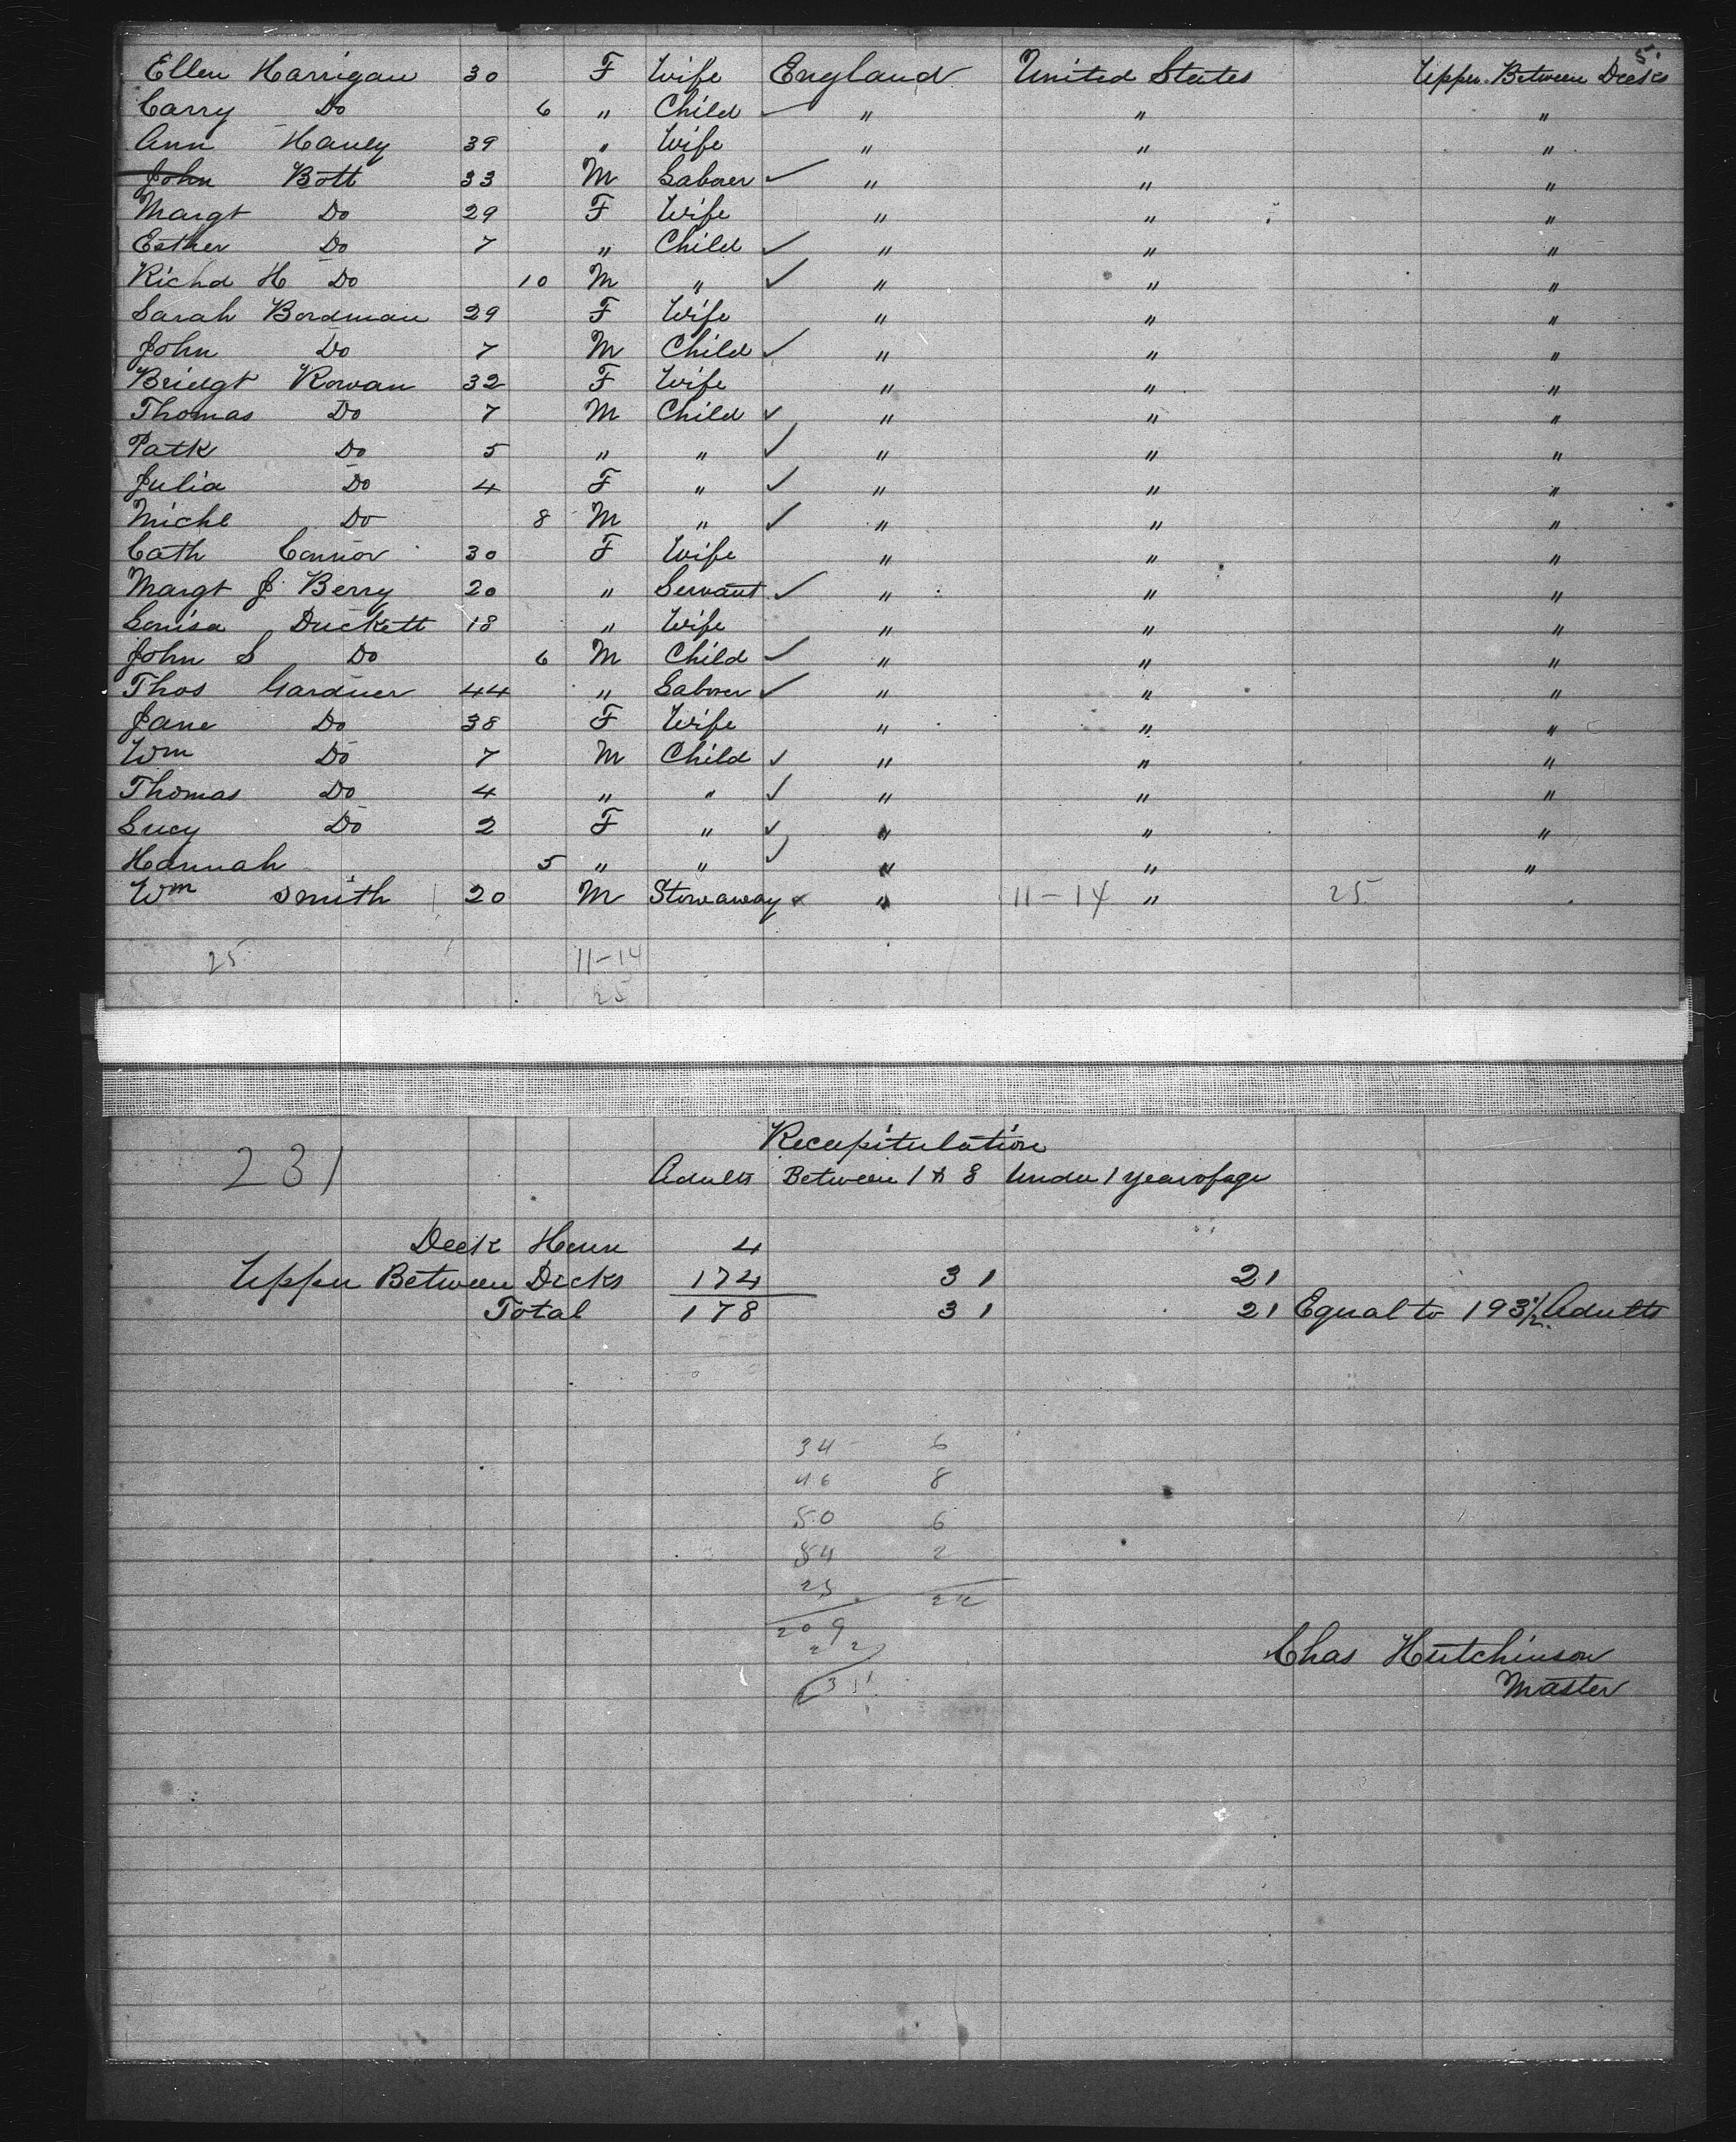 5.
Ellen Harrigan 30 F Wife England United States Upper Between Decks
Carry Do 6 " Child ✓ " " "
Ann Hauey 39 " Wife " " "
John Bott 33 M Laborer ✓ " " "
Margt Do 29 F Wife " " "
Esther Do 7 " Child ✓ " " "
Richd H Do 10 M " ✓ " " "
Sarah Bordman 29 F Wife " " "
John Do 7 M Child ✓ " " "
Bridgt Rowan 32 F Wife " " "
Thomas Do 7 M Child ✓ " " "
Patk Do 5 " " ✓ " " "
Julia Do 4 F " ✓ " " "
Michl Do 8 M " ✓ " " "
Cath Connor 30 F Wife " " "
Margt J Berry 20 " Servant ✓ " " "
Louisa Duckett 18 " Wife " " "
John S Do 6 M Child ✓ " " "
Thos Gardner 44 " Laborer ✓ " " "
Jane Do 38 F Wife " " "
Wm Do 7 M Child ✓ " " "
Thomas Do 4 " " ✓ " " "
Lucy Do 2 F " ✓ " " "
Hannah 5 " " ✓ " " "
Wm Smith 20 M Stowaway ✓ " 11-14 " 25
25 11-14
25
Recapitulation
231
Adults Between 1 & 8 Under 1 year of age
Deck Houn 4
Upper Between Decks 174 31 21
Total 178 31 21 Equal to 193 1/2 Adults
34 - 6
46 8
50 6
54 2
25
22
209
22
231
Chas Hutchinson
Master